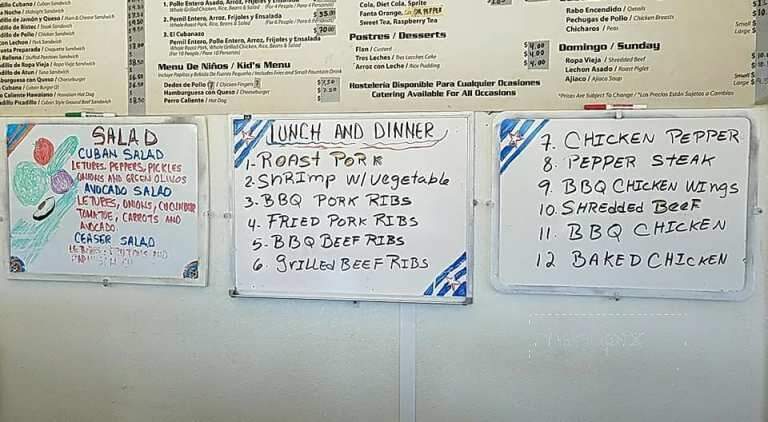 Cubano / Cuban Sandwich
a Noche / Midnight Sandwich
dillo de Jamón y Queso / Ham & Cheese Sandwich
dillo de Bistec / Steak Sandwich
con Lechon / Pork Sandwich
Sandwich de Atun / Tuna Sandwich
burguesa con Queso / Cheeseburger
Cubana / Cuban Burger
n Caliente Hawaiiano / Hawaiian Hot Dog
dillo Picadillo / Cuban Style Ground Beef Sandwich
1. Pollo Entero Asado, Arroz, Frijoles y Ensalada
2. Pernil Entero, Arroz, Frijoles y Ensalada
Whole Roast Pork, Rice, Beans & Salad
3. El Cubanazo
Pernil Entero, Pollo Entero, Arroz, Frijoles y Ensalada
Whole Roast Pork, Whole Grilled Chicken, Rice, Beans & Salad
(For 10 People / Para 10 Personas)
Menu De Niños / Kid's Menu
Incluye Papitas y Bebida De Fuente Pequeña / Includes Fries and Small Fountain Drink
Dedos de Pollo / Chicken Fingers
Hamburguesa con Queso / Cheeseburger
Perro Caliente / Hot Dog
Cola, Diet Cola, Sprite
Fanta Orange, DR PEPPER
Sweet Tea, Raspberry Tea
Postres / Desserts
Flan / Custard $4.00
Tres Leches / Tres Leeches Cake $4.00
Arroz con Leche / Rice Pudding $4.00
Hostelería Disponible Para Cualquier Ocasiones
Catering Available For All Occasions
Rabo Encendido / Oxtails
Pechugas de Pollo / Chicken Breasts
Chicharos / Peas
Domingo / Sunday
Ropa Vieja / Shredded Beef
Lechon Asado / Roast Piglet
Ajiaco / Ajiaco Soup
Small
Large
*Prices Are Subject To Change / *Los Precios Están Sujetos a Cambios
SALAD
CUBAN SALAD
LETURES. PEPPERS, PICKLES
ONIONS AND GREEN OLIVOS
AVOCADO SALAD
LETURES, ONIONS, CUCUMBER
TOMATOE, CARROTS AND
AVOCADO
CEASER SALAD
LUNCH AND DINNER
1. ROAST PORK
2. SHRIMP W/ VEGETABLE
3. BBQ PORK RIBS
4. FRIED PORK RIBS
5. BBQ BEEF RIBS
6. GRILLED BEEF RIBS
7. CHICKEN PEPPER
8. PEPPER STEAK
9. BBQ CHICKEN WINGS
10. SHREDDED BEEF
11. BBQ CHICKEN
12 BAKED CHICKEN